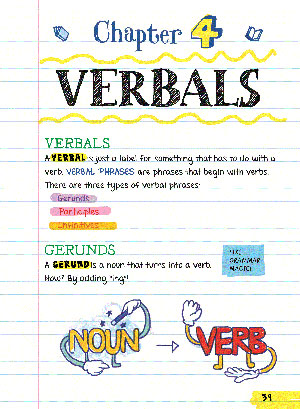 Chapter 4
VERBALS
VERBALS
A VERBAL is just a label for something that has to do with a
verb. VERBAL PHRASES are phrases that begin with verbs.
There are three types of verbal phrases:
Gerunds
Participles
Infinitives
GERUNDS
A GERUND is a noun that turns into a verb.
How? By adding "ing!"
GRAMMAR
MAGIC!
NOUN → VERB
39